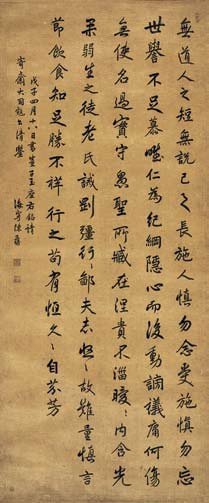 無道人之短無說己之長施人慎勿念受施慎勿忘
世譽不足慕唯仁為紀綱隱心而後動謗議庸何傷
無使名過實守愚聖所臧在涅貴不淄曖〻內含光
柔弱生之徒老氏誡剛彊行〻鄙夫志悠〻故難量慎言
節飲食知足勝不祥行之苟有恆久〻自芬芳
戊子四月十八日書崔子玉座右銘請
寄齋大司寇公清鑒
海寧陳